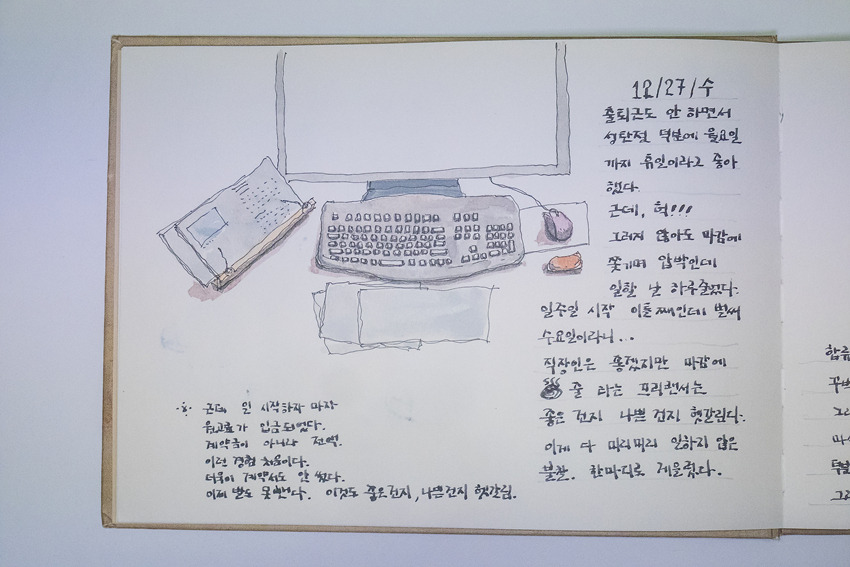 12/27/수
출퇴근도 안 하면서
성탄절 덕분에 월요일
까지 휴일이라고 좋아
했다.
근데, 헉!!!
그러지 않아도 마감에
쫓기며 압박인데
일할 날 하루 줄었다.
일주일 시작 이틀째인데 벌써
수요일이라니...
직장인은 좋겠지만 마감에
줄 타는 프리랜서는
좋은 건지 나쁜 건지 헷갈린다.
이게 다 미리미리 일하지 않은
불찰. 한마디로 게을렀다.
근데 일 시작하자 마자
원고료가 입금되었다.
계약금이 아니라 전액.
이런 경험 처음이다.
더욱이 계약서도 안 썼다.
이제 발도 못 뺀다. 이것도 좋은건지, 나쁜건지 헷갈림.
합류
꾸벅
그러